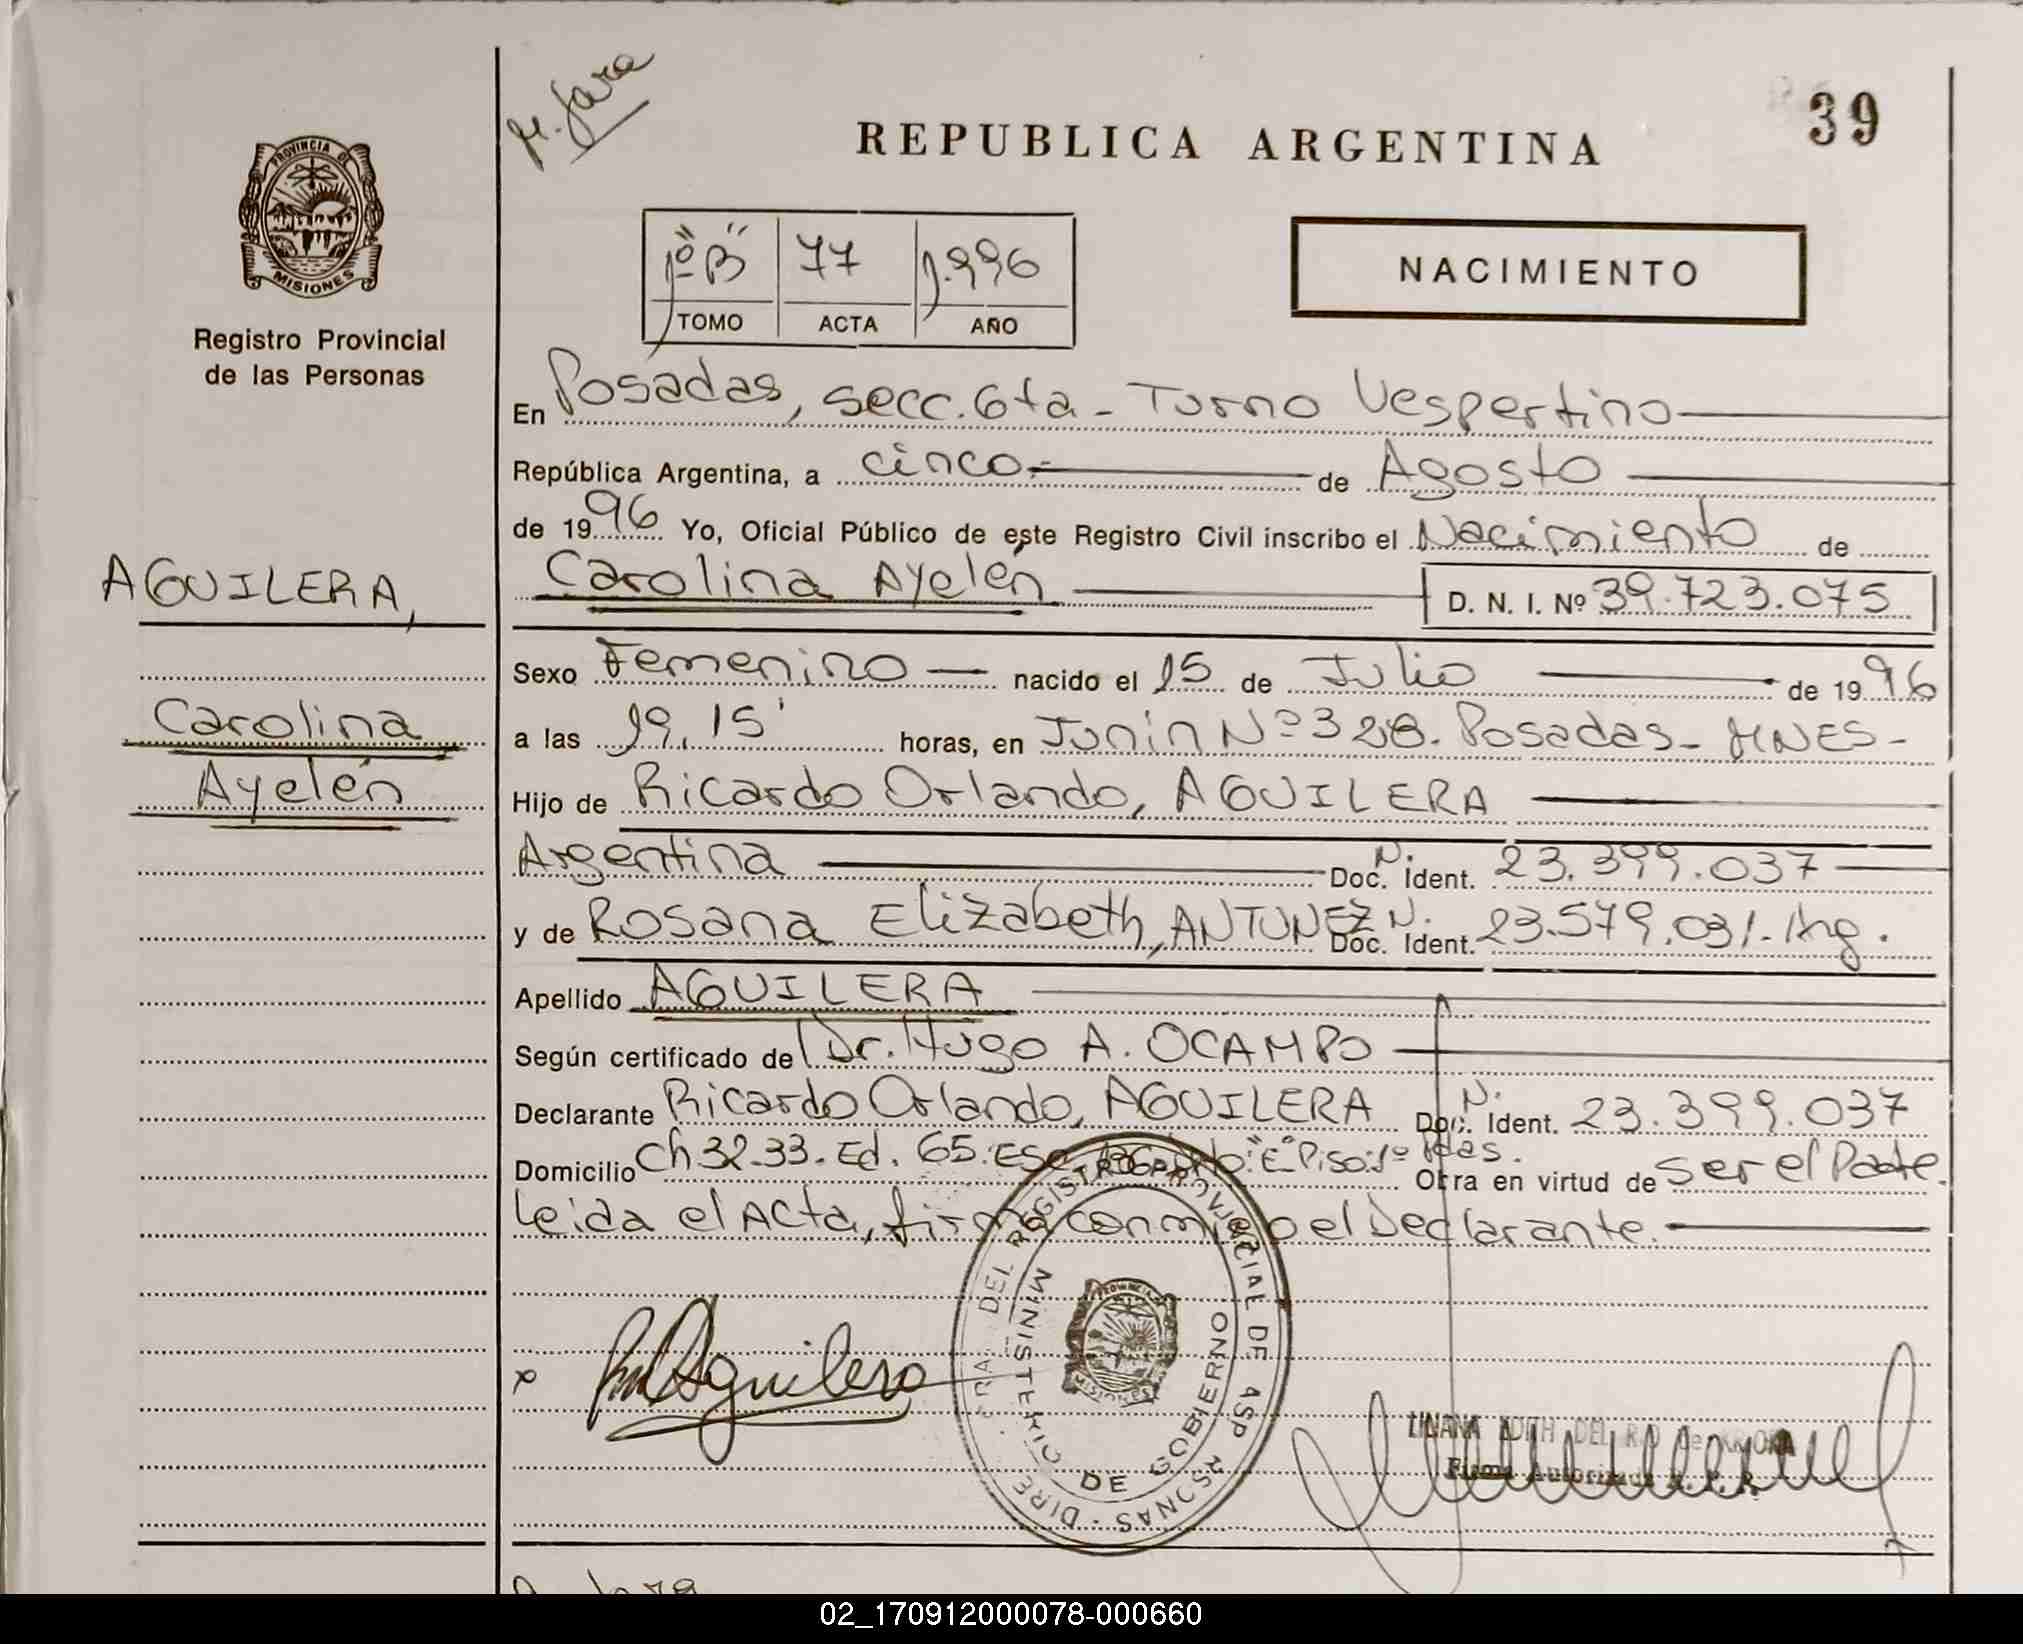 M. Jara
REPUBLICA ARGENTINA
39
PROVINCIA DE
MISIONES
Registro Provincial
de las Personas
1º "B" 77 1.996
TOMO ACTA AÑO
NACIMIENTO
En Posadas, secc. 6ta - Turno Vespertino
República Argentina, a cinco.- de Agosto
de 1996 Yo, Oficial Público de este Registro Civil inscribo el Nacimiento de
Carolina Ayelén D. N. I. Nº 39.723.075
AGUILERA,
Carolina
Ayelén
Sexo Femenino nacido el 15 de Julio de 1996
a las 19,15' horas, en Junín Nº 328. Posadas - MNES -
Hijo de Ricardo Orlando, AGUILERA
Argentina Doc. N. Ident. 23.399.037
y de Rosana Elizabeth, ANTUNEZ Doc. N. Ident. 23.579.031. Arg.
Apellido AGUILERA
Según certificado de Dr. Hugo A. OCAMPO
Declarante Ricardo Orlando, AGUILERA Doc. N. Ident. 23.399.037
Domicilio Ch 32-33. Ed. 65. Esc. "E" Piso: 1º Pdas. Obra en virtud de ser el Padre.
Leida el Acta, firma conmigo el Declarante.
DEL REGISTRO PROVINCIAL DE
MINISTERIO DE GOBIERNO
MISIONES
x Aguilera
EDITH DEL
Firma
02_170912000078-000660